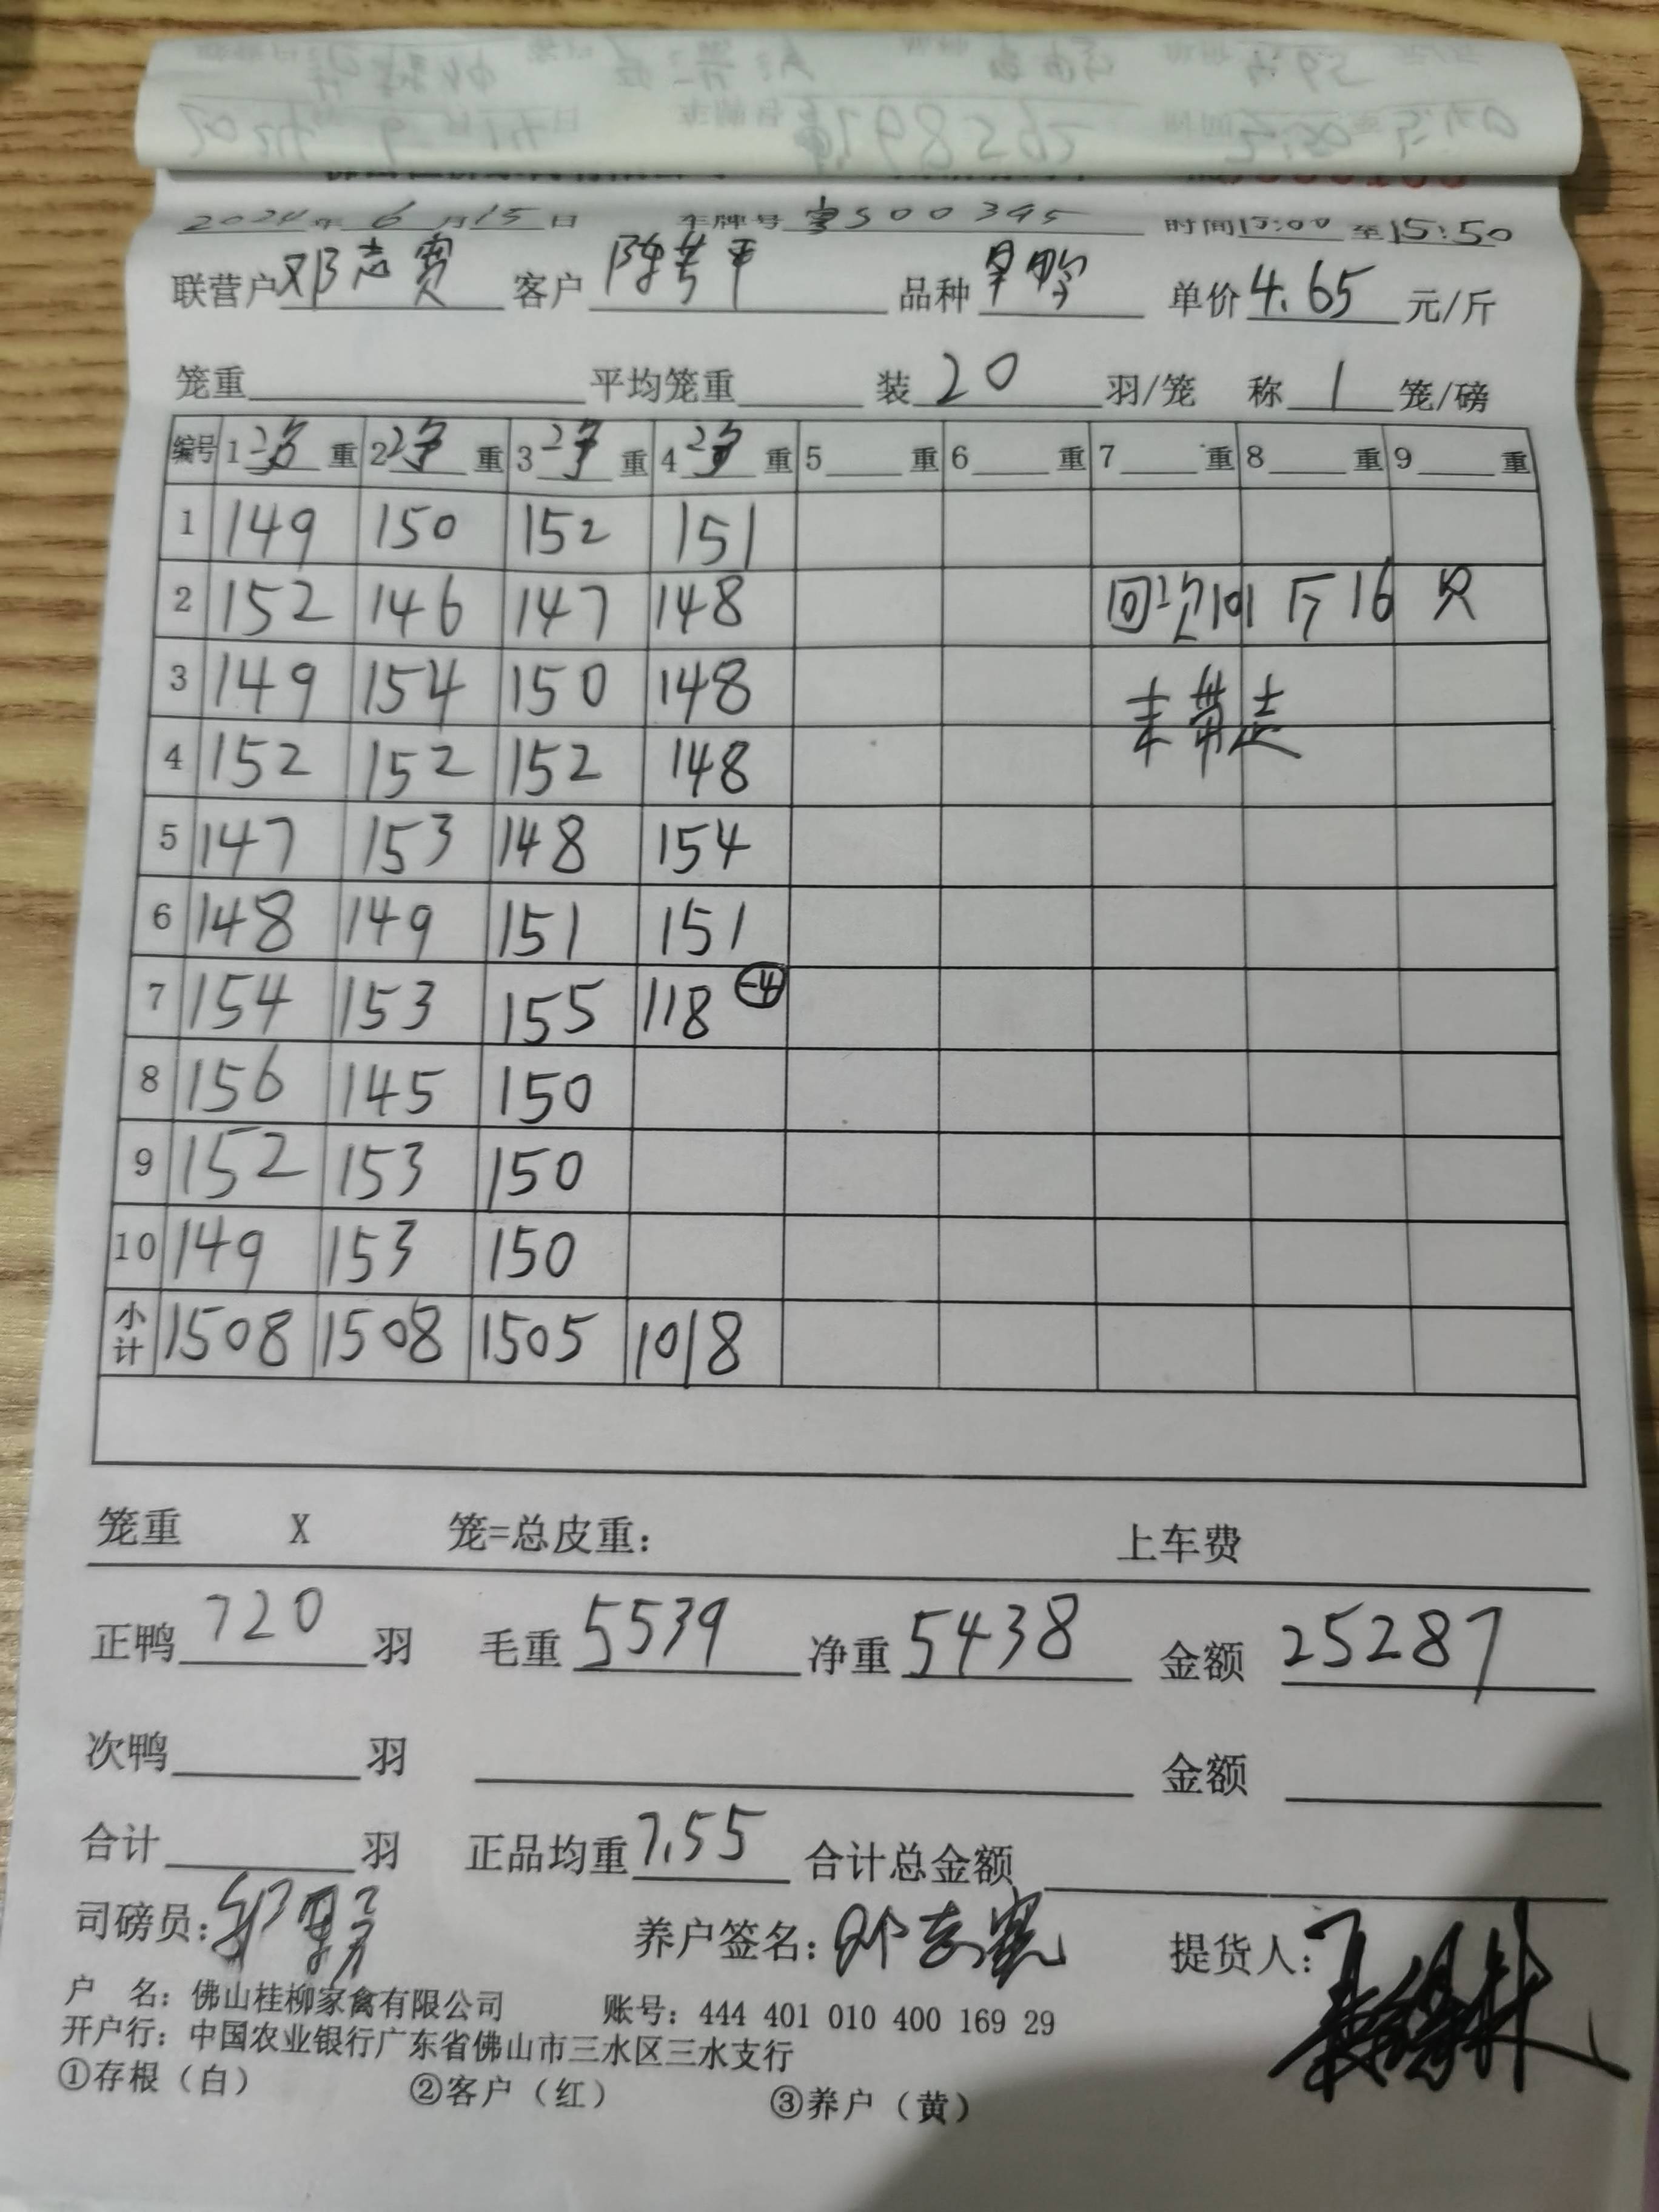 2024年 6月15日 车牌号 S00395 时间15:00至15:50
联营户 邓志宽 客户 陈芳平 品种 单价 4.65 元/斤
笼重 平均笼重 装 20 羽/笼 称 1 笼/磅
编号 1 净 重 2 净 重 3 净 重 4 净 重 5 重 6 重 7 重 8 重 9 重
1 149 150 152 151
2 152 146 147 148 16只
3 149 154 150 148 未带走
4 152 152 152 148
5 147 153 148 154
6 148 149 151 151
7 154 153 155 118 -4
8 156 145 150
9 152 153 150
10 149 153 150
小计 1508 1508 1505 1018
笼重 X 笼=总皮重: 上车费
正鸭 720 羽 毛重 5539 净重 5438 金额 25287
次鸭 羽 金额
合计 羽 正品均重 7.55 合计总金额
司磅员: 养户签名: 邓志宽 提货人:
户 名: 佛山桂柳家禽有限公司 账号: 444 401 010 400 169 29
开户行: 中国农业银行广东省佛山市三水区三水支行
①存根(白) ②客户(红) ③养户(黄)